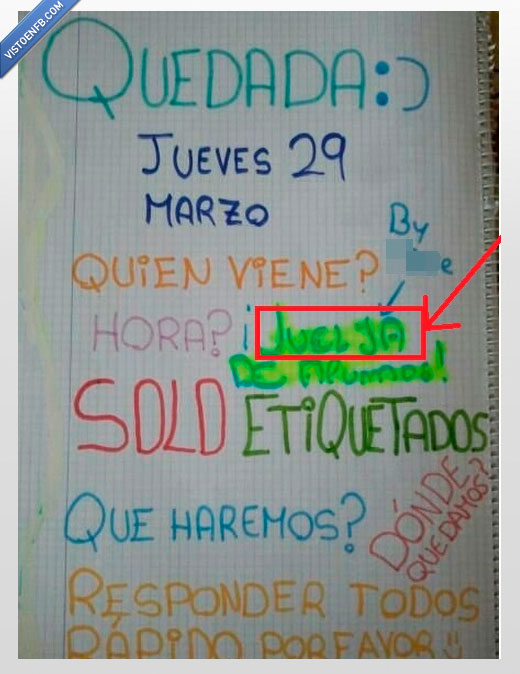 VISTOENFB.COM
QUEDADA:)
JUEVES 29
MARZO
By
QUIEN VIENE?
HORA? ¡JUELJA
DE ALUMNOS!
SOLO ETIQUETADOS
QUE HAREMOS?
DÓNDE
QUEDAMOS?
RESPONDER TODOS
RÁPIDO POR FAVOR